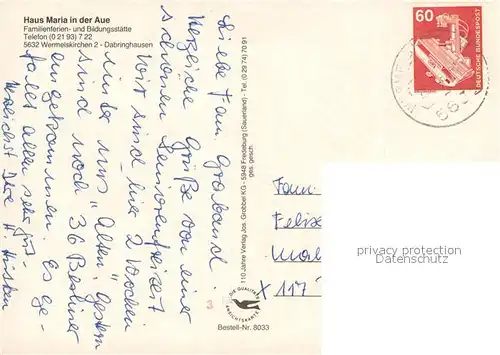 Haus Maria in der Aue
Familienferien- und Bildungsstätte
Telefon (0 21 93) 7 22
5632 Wermelskirchen 2 - Dabringhausen
Liebe Fam.
Herzliche Grüße von einer
schönen Seniorenfreizeit
Wir sind hier 2 Wochen
unter uns "Alten". Gestern
sind noch 36 Berliner
angekommen. Es ge-
fällt allen sehr gut.
Herzlichst Ihre H.
110 Jahre Verlag Jos. Grobbel KG - 5948 Fredeburg (Sauerland) - Tel. (0 29 74) 70 91
ges. gesch.
60
DEUTSCHE BUNDESPOST
Fam.
Felix
X 117
privacy protection
Datenschutz
3
DIE QUALITÄTS
ANSICHTSKARTE
Bestell-Nr. 8033